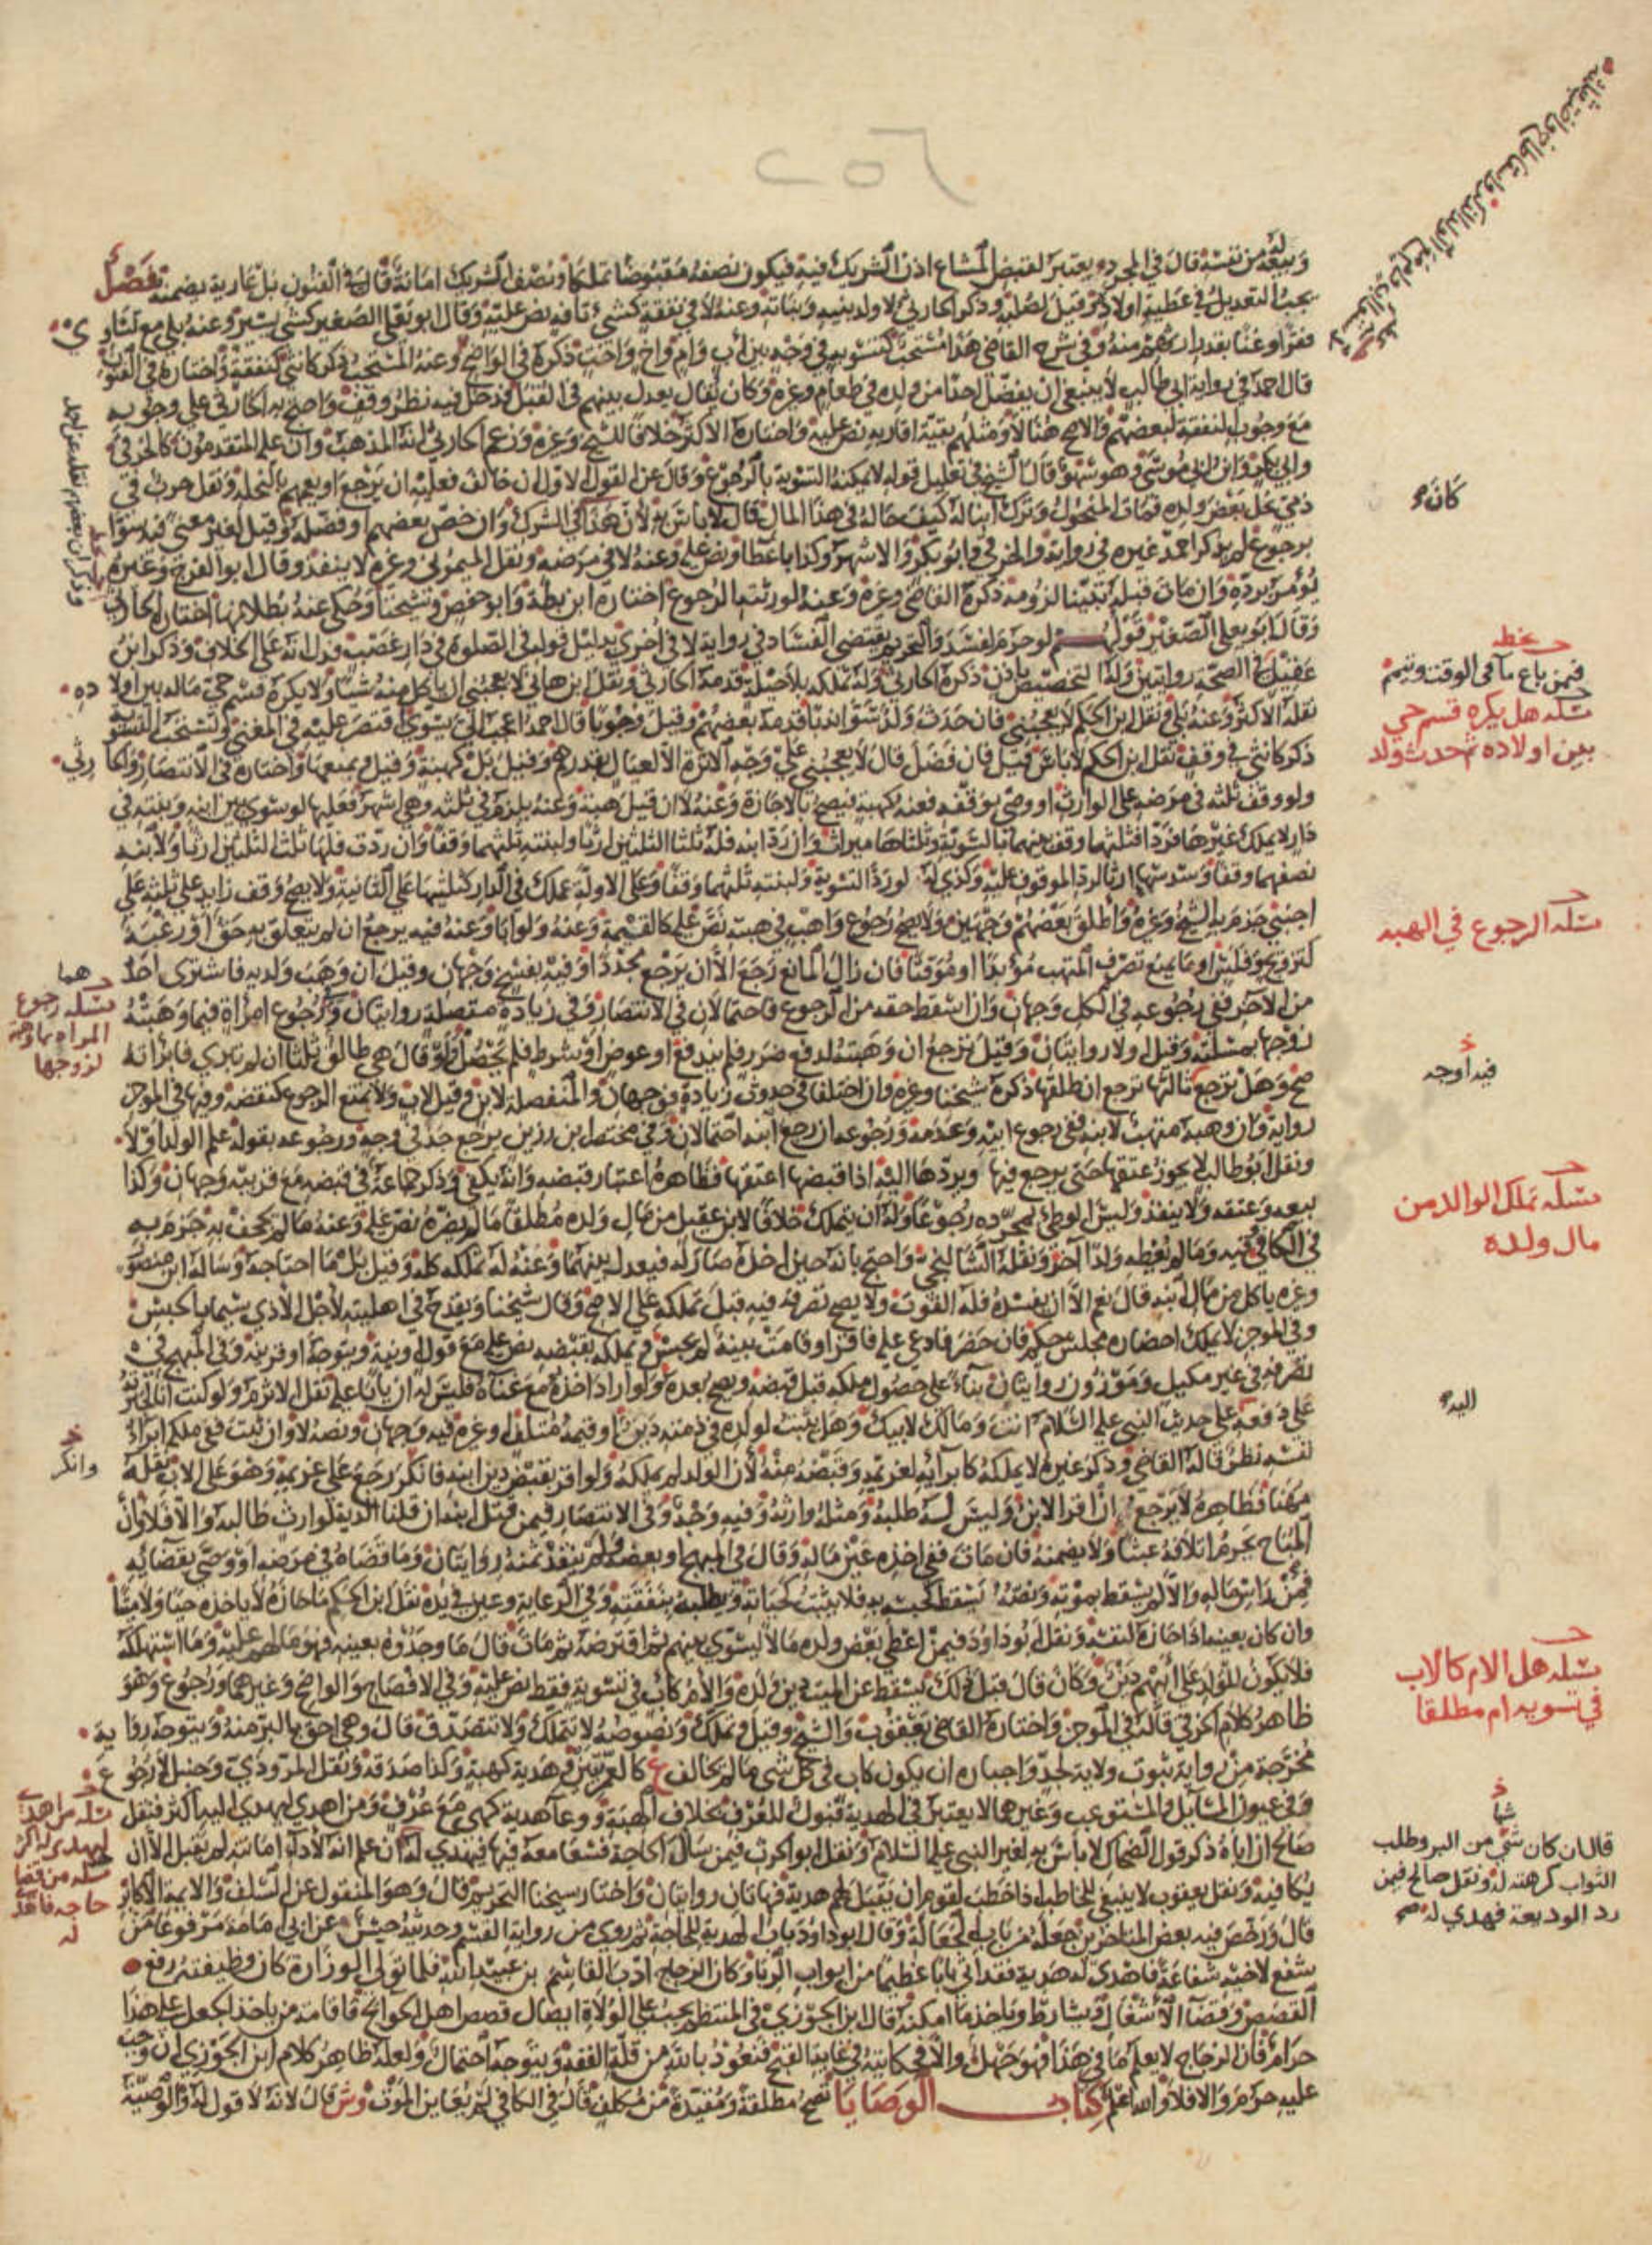 وبيعه من نفسه قال في المجرد ويعتبر لقبض المشاع اذن الشريك فيه فيكون نصفه مقبوضا تملكا ونصف الشريك امانة وقال في الفنون بل عارية يضمنه فصل
يجب التعديل في عطية اولاده وقيل لصلبه وذكر الحارثي لا ولد بنيه وبناته وعنه لا في نفقة كشيء تافه نص عليه وقال ابو يعلى الصغير كشيء يسير وعنه بلى مع تساوي
فقر او غنا بقدر ارثهم منه وفي شرح القاضي هذا مستحب كتسويه في وجه بين اب وام واخ واخت ذكره في الواضح وعنه المستحب ذكر كانثى كنفقة واختاره في الفنون
قال احمد في رواية ابي طالب لا ينبغي ان يفضل احدا من ولده في طعام وغيره وكان يقال يعدل بينهم في القبل فدخل فيه نظر وقف واحتج به الحارثي على وجوبه
مع وجوب النفقة لبعضهم والاصح هنا لا ومثلهم بقية اقاربه نص عليه واختاره الاكثر خلافا للشيخ وغيره وزعم الحارثي انه المذهب وان عليه المتقدمون كالخرقي
وابي بكر وابن ابي موسى وهو سهو قال الشيخ في تعليل قوله لا يمكنه التسوية بالرجوع وقال عن القول الاول ان خالف فعليه ان يرجع او يعمهم بالنحلة ونقل حرب في
ذمي نحل بعض ولده فمات المنحول وترك ابنا له كيف حاله في هذا المال قال لا باس به لان هذا في الشرك وان خص بعضهم او فضله وقيل لغير معنى فيه سوا
برجوع لم يذكر احمد غيره في رواية والخرقي وابو بكر والاشهر وكذا باعطا ونص عليه وعنه لا في مرضه ونقل الميموني وغيره لا ينفذ وقال ابو الفرج وغيره
يؤمر برده وان مات قبله تبينا لزومه ذكره القاضي وغيره وعنه لورثته الرجوع اختاره ابن بطة وابو حفص وشيخنا وحكي عنه بطلانها اختاره الحارثي
وقال ابو يعلى الصغير قولهم لو حرم لفسد والتحريم يقتضي الفساد في رواية لا في اخرى بدليل قوله في الصلوة في دار غصب فدل انه على الخلاف وذكر ابن
عقيل في الصحة روايتين وله التخصيص باذن ذكره الحارثي وله تملكه بلا حيلة قدمه الحارثي ونقل ابن هاني لا يعجبني ان ياكل منه شيئا ولا يكره قسم حي ماله بين اولاده
نقله الاكثر وعنه بلى ونقل ابن الحكم لا يعجبني فان حدث له ولد سوى ندبا قدمه بعضهم وقيل وجوبا قال احمد اعجب الى ان يسوي اقتصر عليه في المغني وتستحب التسوية
ذكر كانثى في وقف نقل ابن الحكم لا باس قيل فان فضل قال لا يعجبني على وجه الاثرة الا لعيال بقدرهم وقيل بل كهبة وقيل ويمنعها واختاره في الانتصار والحارثي
ولو وقف ثلثه في مرضه على الوارث او وصى بوقفه فعنه كهبة فيصح بالاجازة وعنه لا ان قيل هبة وعنه يلزم في ثلثه وهي اشهر فعليها لو سوى بين ابنه وبنته في
دار لا يملك غيرها فردا فثلثها وقف بينهما بالسوية وثلثاها ميراث وان رد ابنه فله ثلثا الثلثين ارثا ولبنته ثلثهما وقفا وان ردت فلها ثلث الثلثين ارثا ولابنه
نصفهما وقفا وسدسهما ارثا لرد الموقوف عليه وكذي له لو رد التسوية ولبنته ثلثهما وقفا وعلى الاولة عملك في الدار كثلثيها على الثانية ولا يصح وقف زايد على ثلثه على
اجنبي جزم به الشيخ وغيره واطلق بعضهم وجهين ولا يصح رجوع واهب في هبته نص عليه كالقيمة وعنه ولو ابا وعنه فيه يرجع ان لم يتعلق به حق او رغبة
كتزويج وفلس او ما يمنع تصرف المتهب مؤبدا او موقتا فان زال المانع رجع الا ان يرجع مجددا وفيه بفسخ وجهان وقيل ان وهب ولديه فاشترى احدهما
من الاخر ففي رجوعه في الكل وجهان وان اسقط حقه من الرجوع فاحتمالان في الانتصار وفي زيادة منفصلة روايتان وفي رجوع امراة فيما وهبته
زوجها بمسئلته وقيل او لا روايتان وقيل ترجع ان وهبته لدفع ضرر فلم يندفع او عوض او بشرط فلم يحصل ولو قال هي طالق ثلثا ان لم تبرئي فابرأته
صح وهل ترجع ثالثها ترجع ان طلقها ذكره شيخنا وغيره وان اختلفا في حدوث زيادة فوجهان والمنفصلة لابن وقيل لاب ولا تمنع الرجوع كنقصه وفيها في الموجز
رواية وان وهبه متهب لابنه ففي رجوع ابيه وعدمه ورجوعه ان رجع ابنه احتمالان وفي مختصر ابن رزين يرجع جد في وجه ورجوعه بقوله علم الولد او لا
ونقل ابو طالب لا يجوز عتقها حتى يرجع فيها ويردها اليه اذا قبضها اعتقها فظاهره اعتبار قبضه وانه يكفي وذكر جماعة في قبضه مع قرينته وجهان وكذا
بيعه وعتقه ولا ينفذ وليس الوطئ بمجرده رجوعا وله ان يتملك خلافا لابن عقيل من مال ولده مطلقا ما لم يضره نص عليه وعنه ما لم يجحف به جزم به
في الكافي وفيه وما لم يعطه ولدا آخر ونقله الشالنجي واحتج بانه حين اخذه صار له فيعدل بينهما وعنه له تملكه كله وقيل بل ما احتاجه وساله ابن منصور
وغيره ياكل من مال ابنه قال نعم الا ان يفسده فله القوت ولا يصح تصرفه فيه قبل تملكه على الاصح وقال شيخنا ويقدح في اهليته لاجل الاذى سيما بالحبس
وفي الموجز لا يملك احضاره مجلس حكم فان حضر فادعى عليه فاقر او قامت بينة لم يحبس ويملكه بقبضه نص عليه مع قول او نية ويتوجه او قرينة وفي المبهج في
تصرفه في غير مكيل وموزون روايتان بناء على حصول ملكه قبل قبضه ويصح بعده ولو اراد اخذه مع غناه فليس له ان يابا عليه نقل الاثرم ولو كنت انا لم
على دفعه على حديث النبي عليه السلام انت ومالك لابيك وهل يثبت لولده في ذمته دين او قيمة متلف وغيره فيه وجهان ونصه لا وان ثبت ففي ملكه ابراء
نفسه نظر قاله القاضي وذكر غيره لا يملكه كابرائه لغريمه وقبضه منه لان الولد لم يملكه ولو اقر بقبض دين ابنه فانكر رجع على غريمه وهو على الاب نقله
مهنا فظاهره لا يرجع ان اقر الابن وليس له طلبه ومثله وارثه وفيه وجه وفي الانتصار فيمن قتل ابنه ان قلنا الدية لوارث طالبه والا فلا وان
المباح يحرم اتلافه عبثا ولا يضمنه فان مات ففي اخذه عين ماله وقال في المبهج او بعضه ولم ينقد ثمنه روايتان وما قضاه في مرضه او وصى بقضائه
فمن راس ماله والا لم يسقط بموته ونصه يسقط كحبسه به فلا يثبت كجناية ويطلبه بنفقته وفي الرعاية وعين في يده نقل ابن الحكم ما حازه لا ياخذه حيا ولا ميتا
وان كان بعينه اذا حازه لنفسه ونقل ابو داود فيمن اعطى بعض ولده مالا ليسوي بينهم ثم اقترضه ثم مات قال ما وجدوه بعينه فهو مالهم عليه وما استهلكه
فلا يكون للولد على ابيهم دين وكان قال قبل ذلك يسقط عن الميت دين ولده والام كاب في تسوية فقط نص عليه وفي الافصاح والواضح وغيرهما ورجوع وهو
ظاهر كلام الخرقي قاله في الموجز واختاره القاضي يعقوب والشيخ وقيل وتملك ونصوصه لا تتملك ولا تتصدق قال وهي احق بالبر منه ويتوجه رواية
مخرجة من رواية ثبوت ولاية لجد واجباره ان يكون كاب في كل شي ما لم يخالف ع كالعمريتين وهدية كهبة وكذا صدقة ونقل المروذي وحنبل لا رجوع
وفي عيون المسايل والمستوعب وغيرهما لا يعتبر في الهدية قبول للعرف بخلاف الهبة ووعاء هدية كهي مع عرف ومن اهدى ليهدى اليه اكثر فنقل
صالح ان اباه ذكر قول الضحاك لا باس به لغير النبي عليه السلام ونقل ابو الحرث فيمن سال الحاجة فسعى معه فيها فيهدي له ان علم انه لاداء امانته لم يقبل الا ان
يكافيه ونقل يعقوب لا ينبغي للخاطب اذا خطب لقوم ان يقبل لهم هدية فهاتان روايتان واختار شيخنا التحريم قال وهو المنقول عن السلف والايمة الاكابر
قال ورخص فيه بعض المتاخرين جعله من باب الجعالة وقال ابو داود باب الهدية للحاجة ثم روى من رواية القسم وحديثه حسن عن ابي امامة مرفوعا من
شفع لاخيه شفاعة فاهدى له هدية فقد اتى بابا عظيما من ابواب الربا وكان الزجاج ادب القاسم بن عبيد الله فلما تولى الوزارة كان وظيفته رفع
القصص وقضاء الاشغال ويشارط وياخذ ما امكنه قال ابن الجوزي في المنتظم يجب على الولاة ايصال قصص اهل الحوائج فاقامة من ياخذ الجعل على هذا
حرام فان الزجاج لا يعلم ما في هذا فهو جهل والا فحكايته في غاية القبح فنعوذ بالله من قلة الفقه ويتوجه احتمال ولعله ظاهر كلام ابن الجوزي ان وجب
عليه حرم والا فلا والله اعلم كتاب الوصايا تصح مطلقة ومقيدة من مكلف قال في الكافي لم يعاين الموت وش قال لانه لا قول له والوصية
كان
بخطه
فيمن باع ما في الوقت ويتم
مسئلة هل يكره قسم حي
بين اولاده ثم حدث ولد
مسئلة الرجوع في الهبه
مسئلة رجوع
المراه بما وهبته
لزوجها
فيه اوجه
مسئلة تملك الوالد من
مال ولده
اليه
وانكر
مسئلة هل الام كالاب
في تسويه ام مطلقا
مسئلة من اهدى
ليهدى له اكثر
مسئلة من قضا
حاجه فاهدى
له
قال ان كان شيئا من البر وطلب
الثواب كرهته له ونقل صالح فيمن
رد الوديعة فيهدي له صح